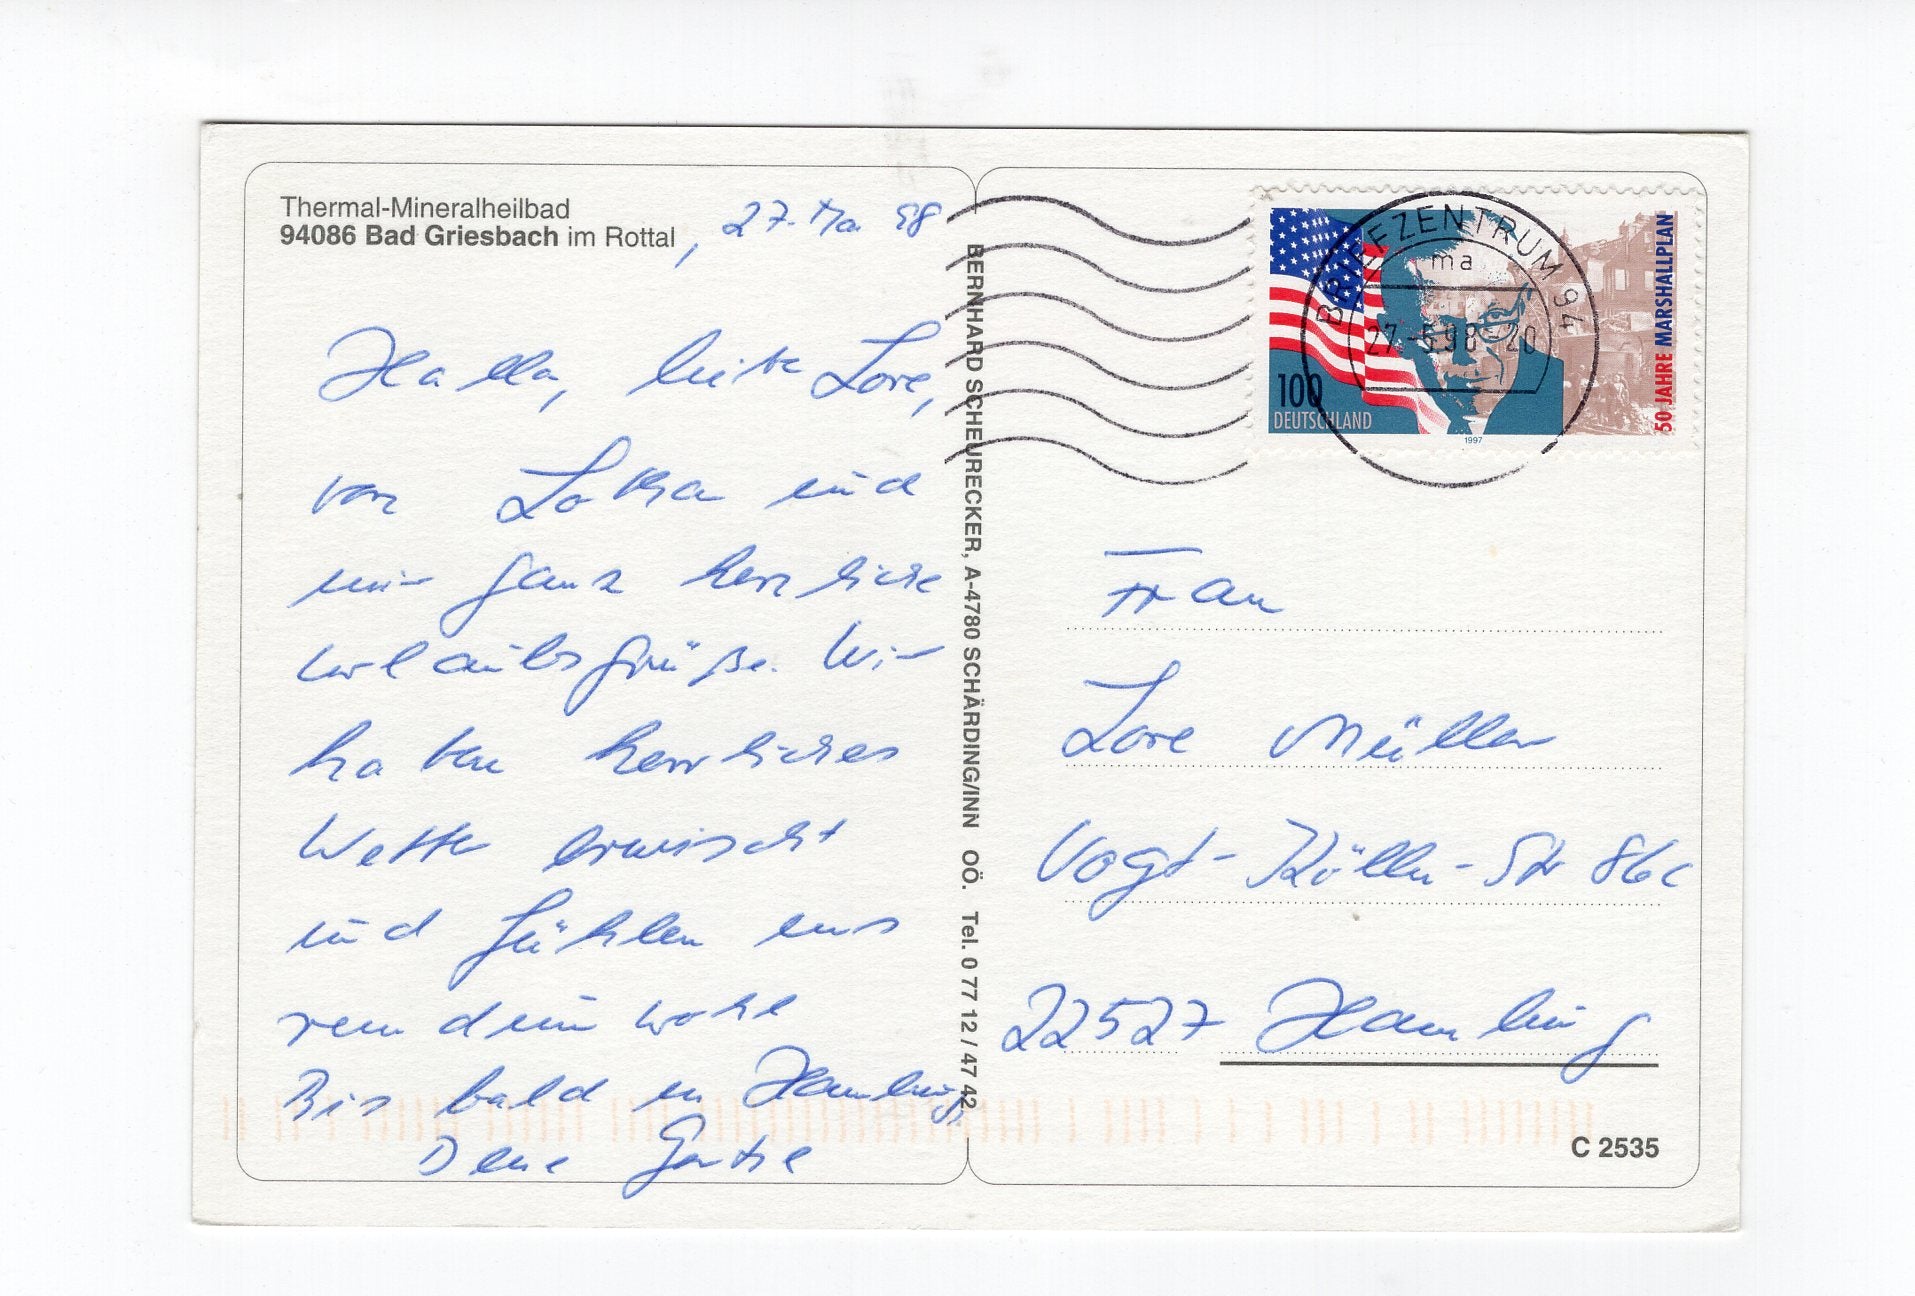 Thermal-Mineralheilbad
94086 Bad Griesbach im Rottal
, 27. Mai 98
Hallo, liebe Lore,
von Lothar und
mir ganz herzliche
Urlaubsgrüße. Wir
haben herrliches
Wetter erwischt
und fühlen uns
rundum wohl
Bis bald in Hamburg,
Deine
BERNHARD SCHEURECKER, A-4780 SCHÄRDING/INN OÖ. Tel. 0 77 12 / 47 42
BRIEFZENTRUM 94
ma
27.-5.98-20
100
DEUTSCHLAND
1997
50 JAHRE MARSHALLPLAN
Frau
Lore Müller
Vogt-Kölln-Str 86c
22527 Hamburg
C 2535